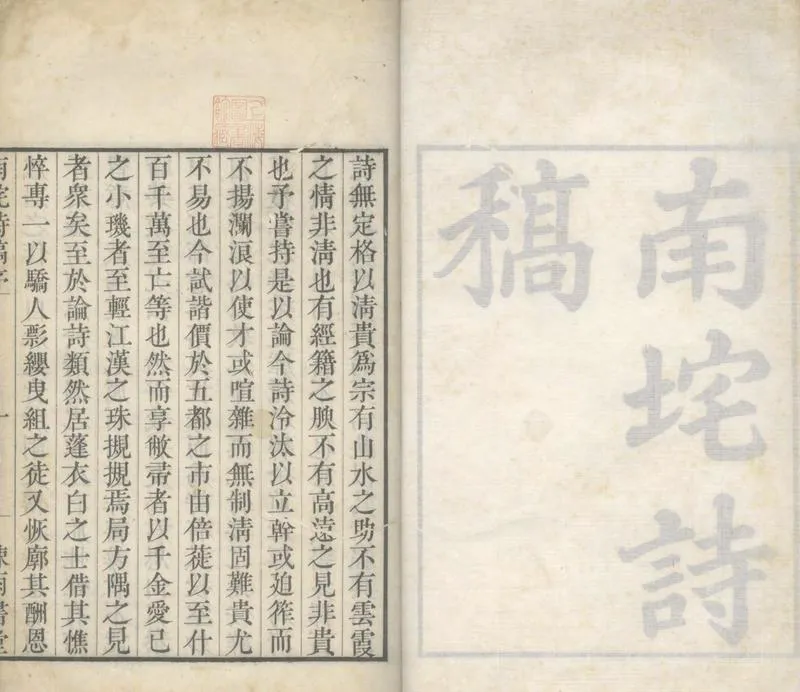 南垞詩
稿
上海圖書館藏
詩無定格以淸貴爲宗有山水之助不有雲霞
之情非淸也有經籍之腴不有高遠之見非貴
也予嘗持是以論今詩泠汰以立幹或廹筰而
不揚瀾浪以使才或喧雜而無制淸固難貴尤
不易也今試諧價於五都之市由倍蓰以至什
百千萬至亡等也然而享敝帚者以千金愛己
之小璣者至輕江漢之珠摫摫焉局方隅之見
者衆矣至於論詩類然居蓬衣白之士借其憔
悴專一以驕人彯纓曳組之徒又恢廓其酬恩
南垞詩稿序
一